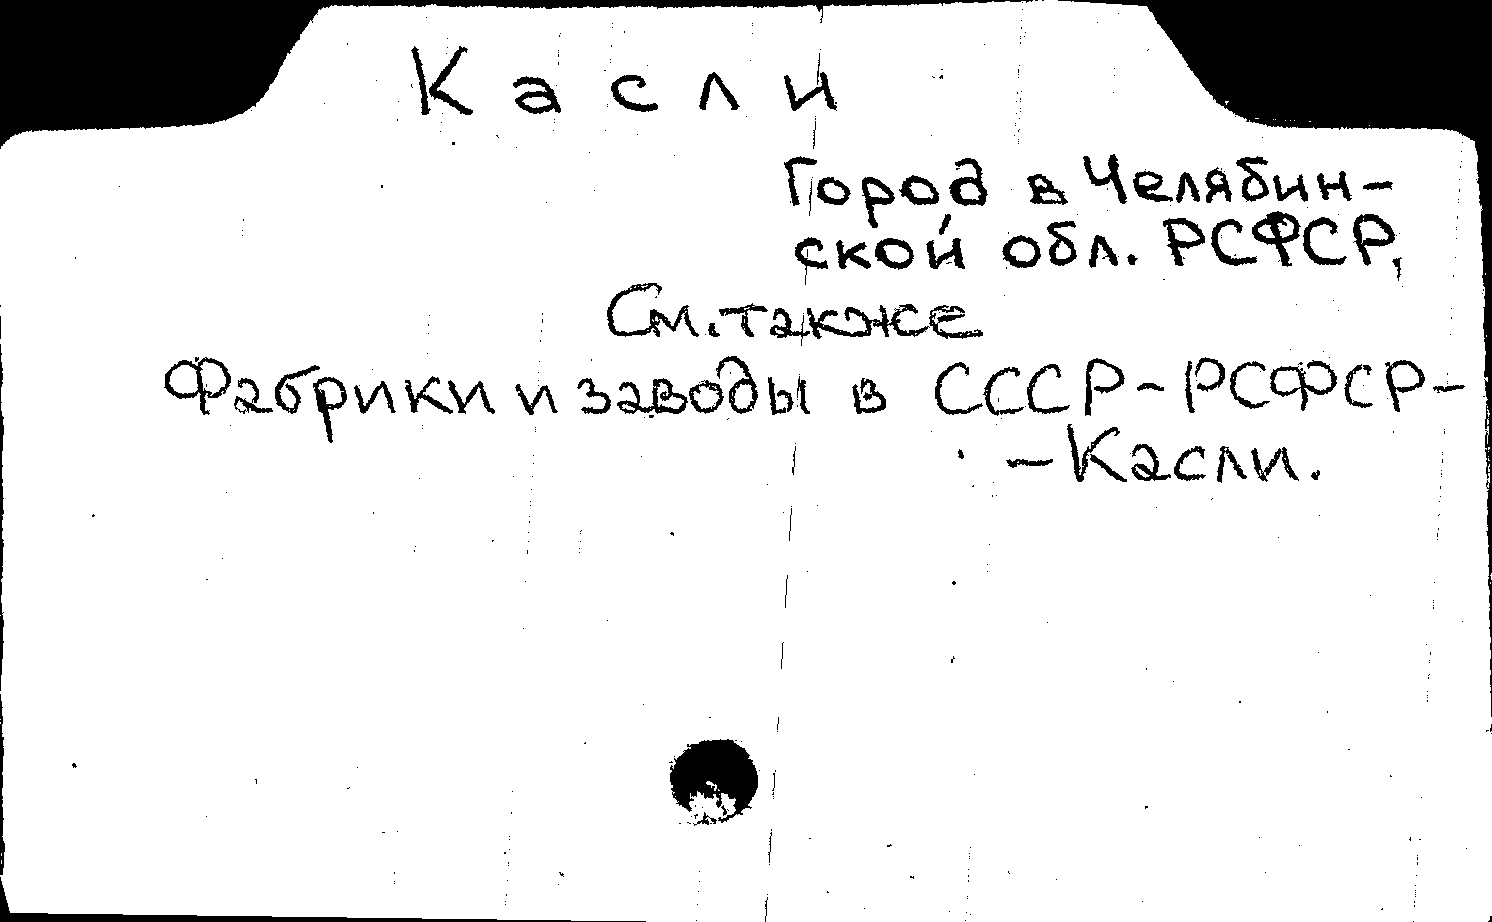 Касли
Город в Челябин-
ской обл. РСФСР.
См. также
Фабрики и заводы в СССР-РСФСР-
-Касли.